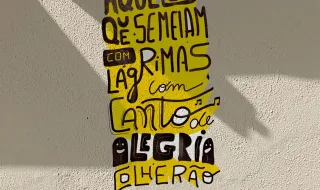 AQUELES
QUE SEMEIAM
COM
LÁGRIMAS
com
CANTO de
ALEGRIA
COLHERÃO